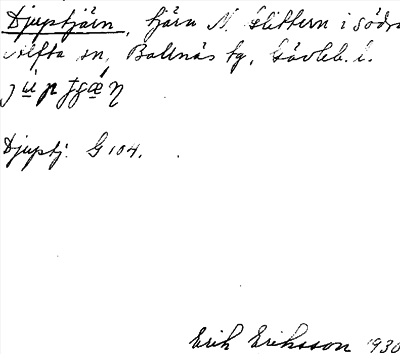 Djuptjärn, tjärn N. Glittern i södra
Alfta sn, Bollnäs tg, Gävleb. l.
Djuptj. G 104.
Erik Eriksson 1930